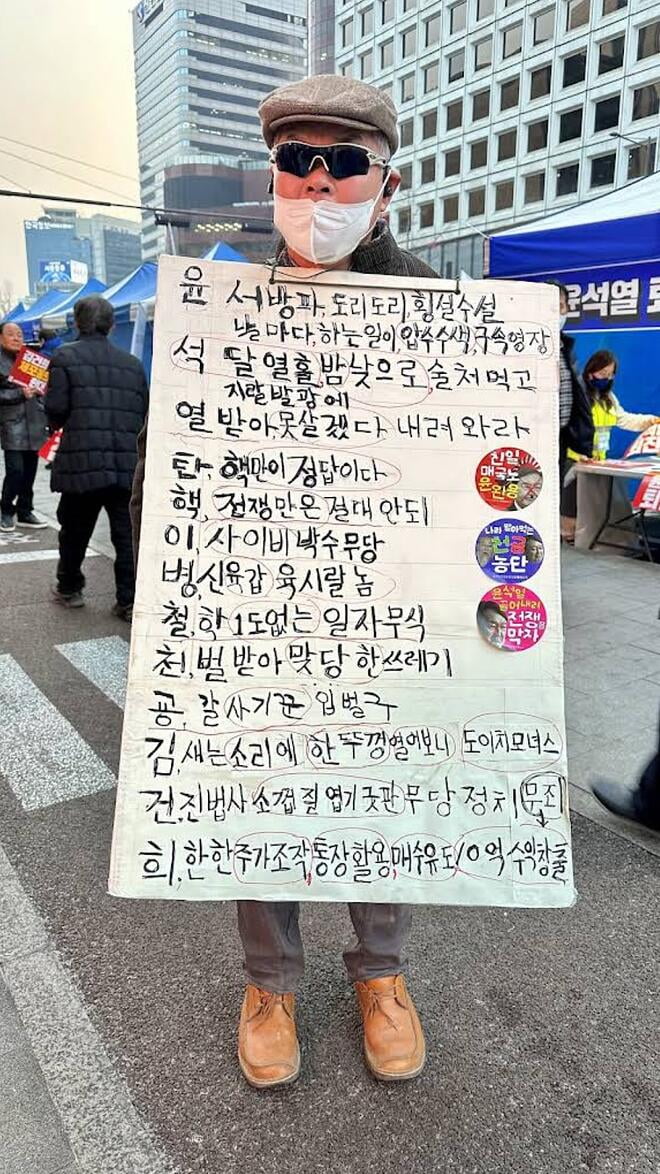 윤 서방파, 도리도리 횡설수설
날마다, 하는일이, 압수수색, 구속영장
석 달 열흘, 밤낮으로 술처먹고
지랄발광에
열 받아, 못살겠다 내려와라
탄, 핵만이 정답이다
핵, 전쟁만은 절대 안되
이, 사이비 박수무당
병, 신육갑 육시랄 놈
철, 학 1도없는 일자무식
천, 벌 받아 맞당한 쓰레기
공, 갈 사기꾼 입벌구
김, 새는 소리에 한 뚜껑열어보니 도이치모녀스
건, 진법사 소껍질 엽기굿판 무당정치 무죄
희, 한한 주가조작, 통장활용, 매수유도 10억 수익창출
친일
매국노
윤완용
나라 팔아먹는
천공
농단
윤석열
끌어내려
전쟁을
막자
윤석열 퇴